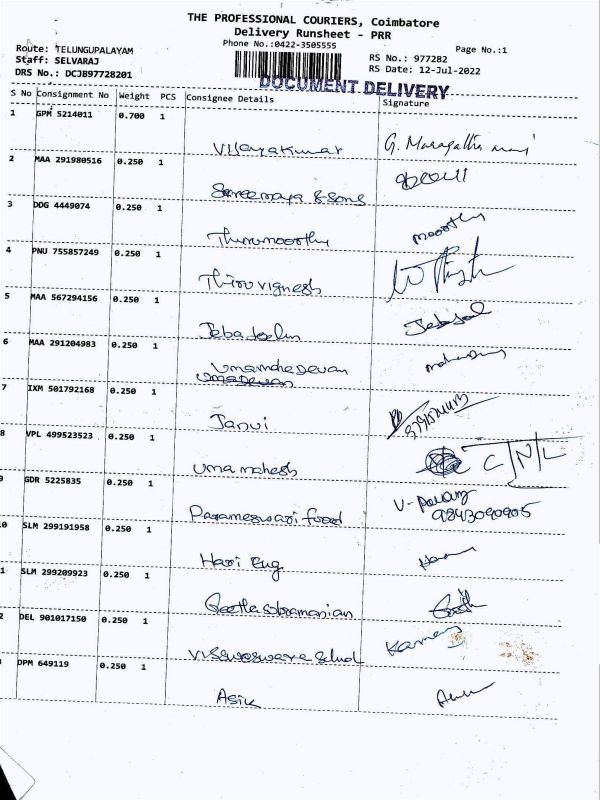 THE PROFESSIONAL COURIERS, Coimbatore
Delivery Runsheet - PRR
Phone No.:0422-3505555
Page No.:1
Route: TELUNGUPALAYAM
Staff: SELVARAJ
DRS No.: DCJB97728201
RS No.: 977282
RS Date: 12-Jul-2022
DOCUMENT DELIVERY
S No Consignment No Weight PCS Consignee Details Signature
1 GPM 5214011 0.700 1
Vijayakumar G. Maragatha mani
2 MAA 291980516 0.250 1
Sreemaya & sons
3 DDG 4449074 0.250 1
Thirumoorthy moorthy
4 PNU 755857249 0.250 1
Thiruvignesh
5 MAA 567294156 0.250 1
Jebajoelin
6 MAA 291204983 0.250 1
Umamahadevan
Umadevan
7 IXM 501792168 0.250 1
Janvi
8 VPL 499523523 0.250 1
Uma mahesh C/N/L
GDR 5225835 0.250 1
Parameswari food 9843090905
0 SLM 299191958 0.250 1
Hari Rug
1 SLM 299209923 0.250 1
Geethasubramanian
2 DEL 901017150 0.250 1
DPM 649119 0.250 1
Asik